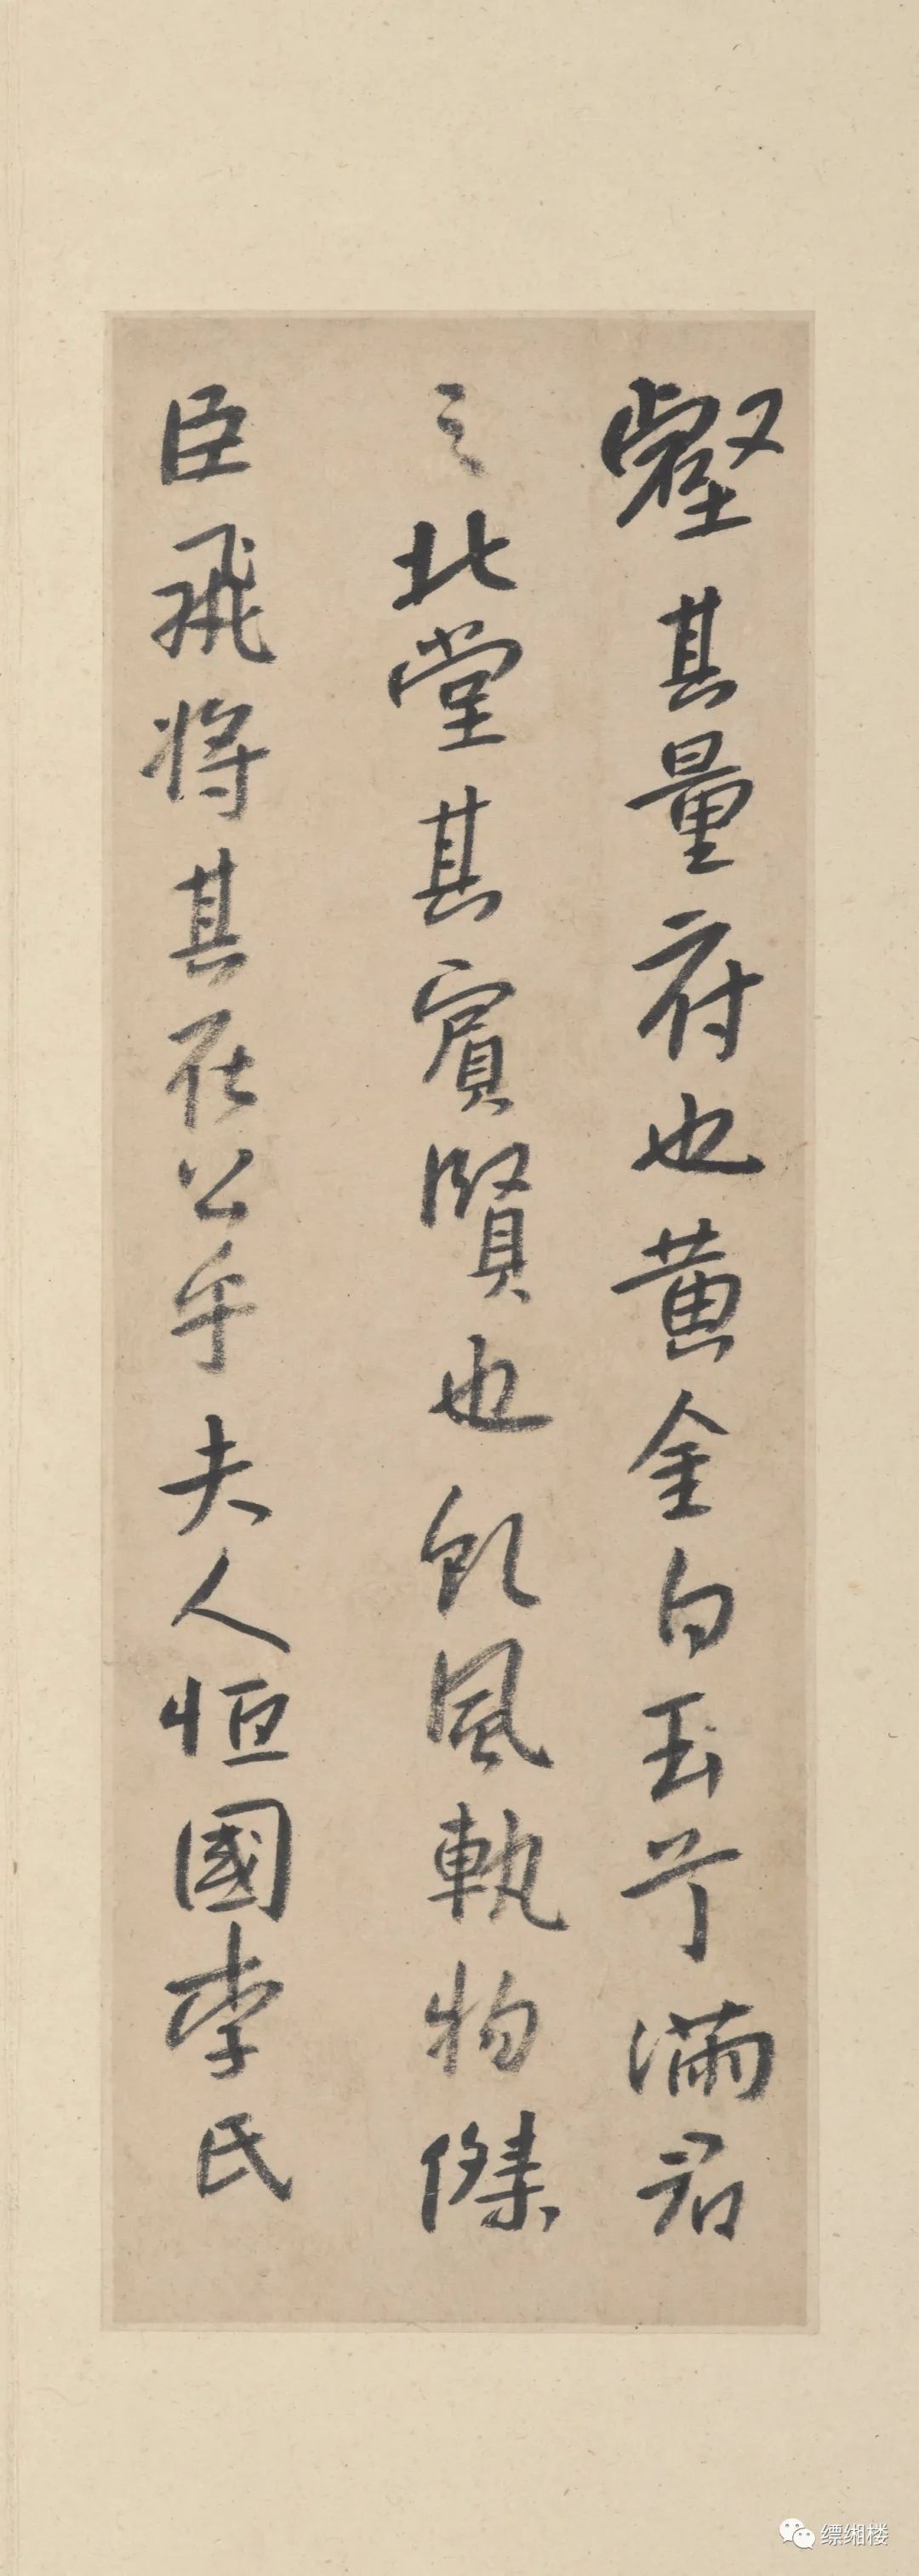 壑其量府也黄金白玉丁满君
之北堂其賓賢也飲風執物傑
臣飛將其在公乎夫人恒國李氏
缥缃楼